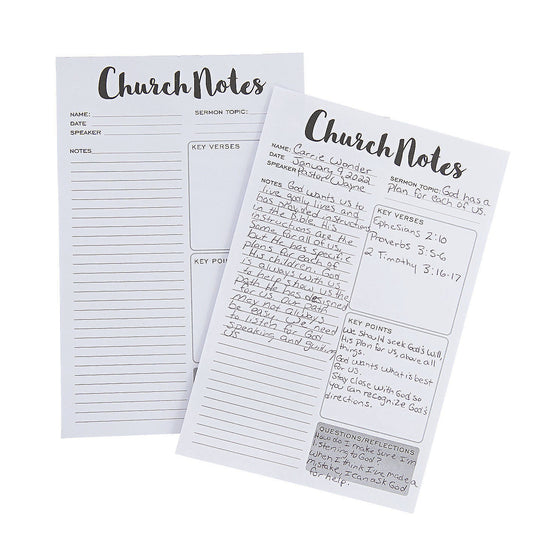 Church Notes
NAME:
SERMON TOPIC:
DATE
SPEAKER
NOTES
KEY VERSES
KEY POINTS
Church Notes
NAME: Carrie Wonder
DATE January 9 2022
SPEAKER Pastor Wayne
SERMON TOPIC: God has a
Plan for each of us.
NOTES God wants us to
live godly lives and
has provided instructions
in the Bible. His
instructions are the
same for all of us,
but He has specific
plans for each of
His children. God
is always with us
to help show us the
path He has designed
for us. Our path
may not always
be easy. We need
to listen for God
speaking and guiding
us.
KEY VERSES
Ephesians 2:10
Proverbs 3:5-6
2 Timothy 3:16-17
KEY POINTS
We should seek God's Will,
His plan for us, above all
things.
God wants what is best
for us.
Stay close with God so
you can recognize God's
directions.
QUESTIONS/REFLECTIONS
How do I make sure I'm
listening to God?
When I think I've made a
mistake, I can ask God
for help.